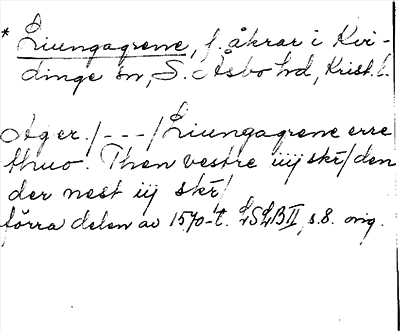 * Liungagrene, f. åkrar i Kvi-
dinge sn, S. Åsbo hd, Krist. l.
Ager. /---/ Liungagrene erre
thuo. Then vestre iiij skr/ den
der nest iij skr/
förra delen av 1570-t. LSLB II, s. 8. orig.